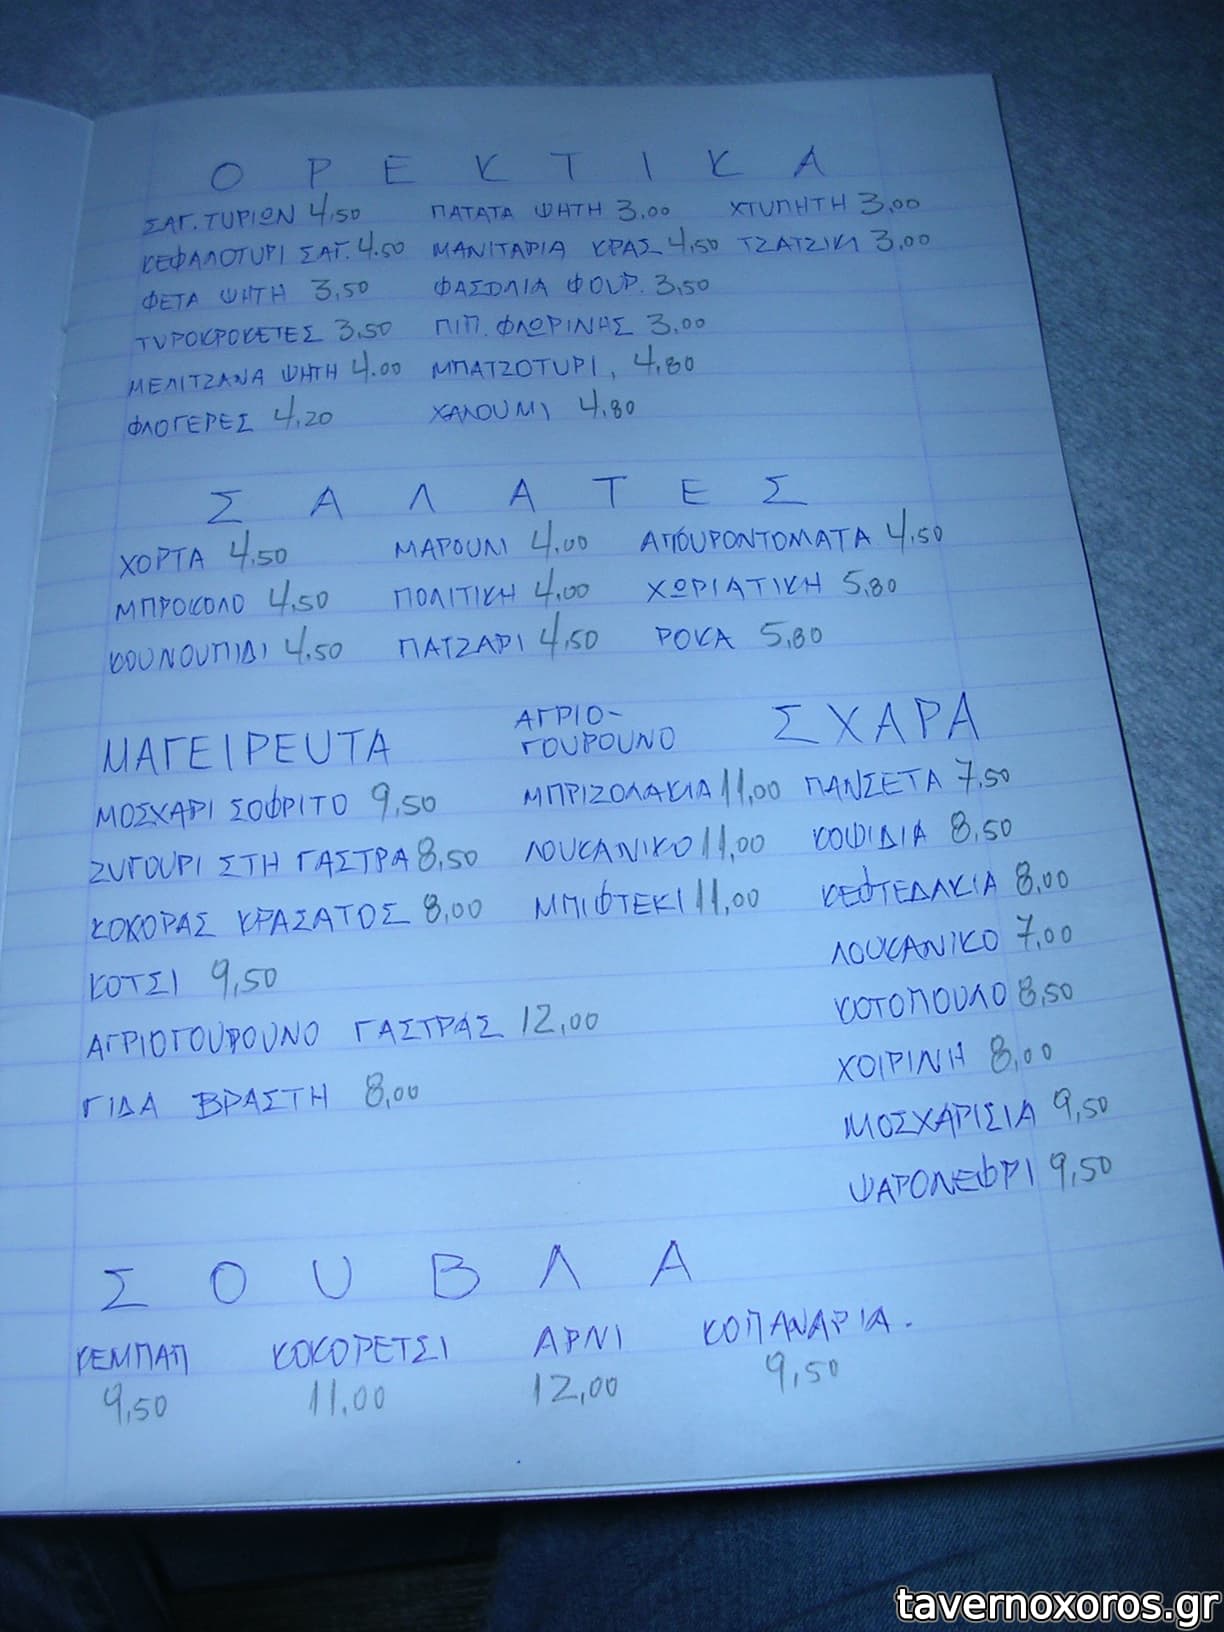 ΟΡΕΚΤΙΚΑ
ΣΑΓ. ΤΥΡΙΩΝ 4,50 ΠΑΤΑΤΑ ΨΗΤΗ 3,00 ΧΤΥΠΗΤΗ 3,00
ΚΕΦΑΛΟΤΥΡΙ ΣΑΓ. 4.50 ΜΑΝΙΤΑΡΙΑ ΚΡΑΣ 4,50 ΤΖΑΤΖΙΚΙ 3,00
ΦΕΤΑ ΨΗΤΗ 3,50 ΦΑΣΟΛΙΑ ΦΟΥΡ. 3,50
ΤΥΡΟΚΡΟΚΕΤΕΣ 3,50 ΠΙΠ. ΦΛΩΡΙΝΗΣ 3,00
ΜΕΛΙΤΖΑΝΑ ΨΗΤΗ 4.00 ΜΠΑΤΖΟΤΥΡΙ, 4,80
ΦΛΟΓΕΡΕΣ 4,20 ΧΑΛΟΥΜΙ 4,80
ΣΑΛΑΤΕΣ
ΧΟΡΤΑ 4,50 ΜΑΡΟΥΛΙ 4,00 ΑΓΓΟΥΡΟΝΤΟΜΑΤΑ 4,50
ΜΠΡΟΚΟΛΟ 4,50 ΠΟΛΙΤΙΚΗ 4,00 ΧΩΡΙΑΤΙΚΗ 5,80
ΚΟΥΝΟΥΠΙΔΙ 4,50 ΠΑΤΖΑΡΙ 4,50 ΡΟΚΑ 5,80
ΜΑΓΕΙΡΕΥΤΑ ΑΓΡΙΟ- ΣΧΑΡΑ
ΓΟΥΡΟΥΝΟ
ΜΟΣΧΑΡΙ ΣΟΦΡΙΤΟ 9,50 ΜΠΡΙΖΟΛΑΚΙΑ 11,00 ΠΑΝΣΕΤΑ 7,50
ΖΥΓΟΥΡΙ ΣΤΗ ΓΑΣΤΡΑ 8,50 ΛΟΥΚΑΝΙΚΟ 11,00 ΚΟΨΙΔΙΑ 8,50
ΚΟΚΟΡΑΣ ΚΡΑΣΑΤΟΣ 8,00 ΜΠΙΦΤΕΚΙ 11,00 ΚΕΦΤΕΔΑΚΙΑ 8,00
ΚΟΤΣΙ 9,50 ΛΟΥΚΑΝΙΚΟ 7,00
ΑΓΡΙΟΓΟΥΡΟΥΝΟ ΓΑΣΤΡΑΣ 12,00 ΚΟΤΟΠΟΥΛΟ 8,50
ΓΙΔΑ ΒΡΑΣΤΗ 8,00 ΧΟΙΡΙΝΗ 8,00
ΜΟΣΧΑΡΙΣΙΑ 9,50
ΨΑΡΟΝΕΦΡΙ 9,50
ΣΟΥΒΛΑ
ΚΕΜΠΑΠ ΚΟΚΟΡΕΤΣΙ ΑΡΝΙ ΚΟΠΑΝΑΡΙΑ.
9,50 11,00 12,00 9,50
tavernoxoros.gr